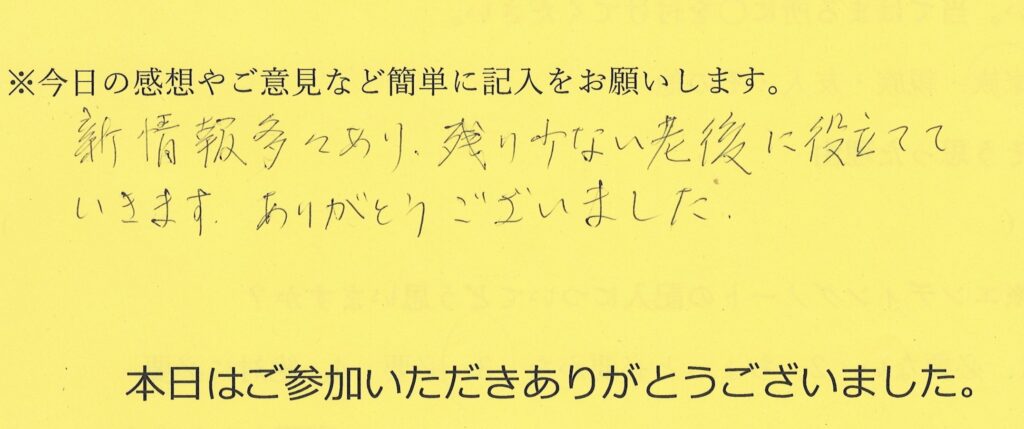 ※今日の感想やご意見など簡単に記入をお願いします。
新情報多々あり、残り少ない老後に役立てて
いきます。ありがとうございました。
本日はご参加いただきありがとうございました。